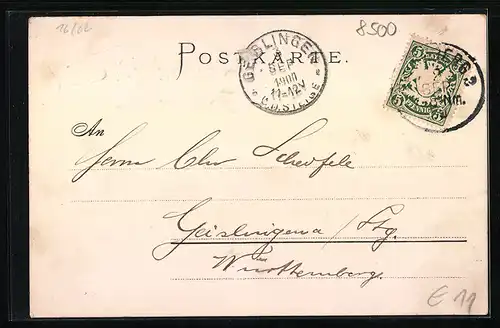 16/02
8500
POSTKARTE.
GEISLINGEN
SEP
1900
11-12V
A.D.STEIGE
5
5
PFENNIG
ERG 2
Nm.
An
Herrn Chr Scheufele
Geislingen a/Stg.
Württemberg.
E 11